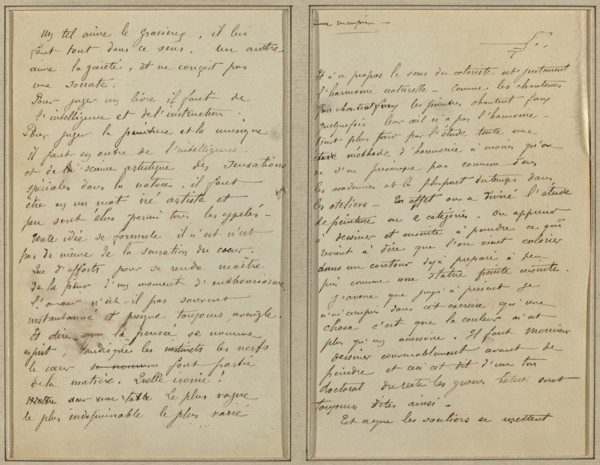 Un tel aime le gracieux, il lui
faut tout dans ce sens. Un autre
aime la gaieté, et ne conçoit pas
une sonate.
Pour juger un livre il faut de
l'intelligence et de l'instruction.
Pour juger la peinture et la musique
il faut en outre de l'intelligence
et de la science artistique des sensations
spéciales dans la nature. il faut
être en un mot né artiste et
peu sont élus parmi tous les appelés.
Toute idée se formule il n'est n'est
pas de même de la sensation du cœur.
Que d'efforts pour se rendre maître
de la peur d'un moment d'enthousiasme
L'amour n'est il pas souvent
instantanné et presque toujours aveugle.
Et dire que la pensée se nomme
esprit, tandisque les instincts les nerfs
le cœur font partie
de la matière. Quelle ironie!
Le plus vague
le plus indéfinissable le plus varié
une manière
Et à ce propos le sens du coloriste est justement
l'harmonie naturelle — Comme les chanteurs
chantent faux les peintres chantent faux
quelquefois leur œil n'a pas l'harmonie —
Vient plus tard par l'étude toute une
méthode d'harmonie à moins qu'on
ne s'en préoccupe pas comme dans
les académies et la plupart du temps dans
les ateliers — En effet on a divisé l'étude
de peinture en 2 catégories. On apprend
à dessiner et ensuite à peindre ce qui
revient à dire que l'on vient colorier
dans un contour déjà préparé à peu
près comme une statue peinte ensuite.
J'avoue que jusqu'à présent je
n'ai compris dans cet exercice qu'une
chose c'est que la couleur n'est
plus qu'un accessoire. Il faut Monsieur
dessiner convenablement avant de
peindre et ceci est dit d'un ton
doctoral du reste les grosses bêtises sont
toujours dites ainsi —
Est ce que les souliers se mettent